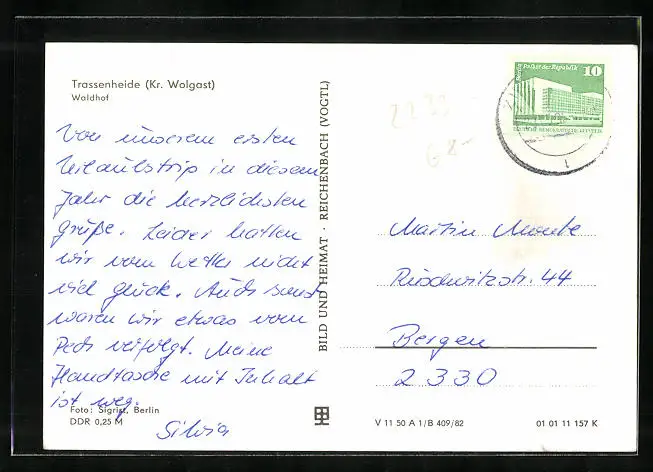 Trassenheide (Kr. Wolgast)
Waldhof
Von unserem ersten
Urlaubstrip in diesem
Jahr die herzlichsten
Grüße. Leider hatten
wir vom Wetter nicht
viel Glück. Auch sonst
waren wir etwas vom
Pech verfolgt. Meine
Handtasche mit Inhalt
ist weg.
Silvia
Foto: Sigrist, Berlin
DDR 0,25 M
BILD UND HEIMAT · REICHENBACH (VOGTL)
V 11 50 A 1/B 409/82
01 01 11 157 K
Palast der Republik
10
Martin
44
Bergen
2330